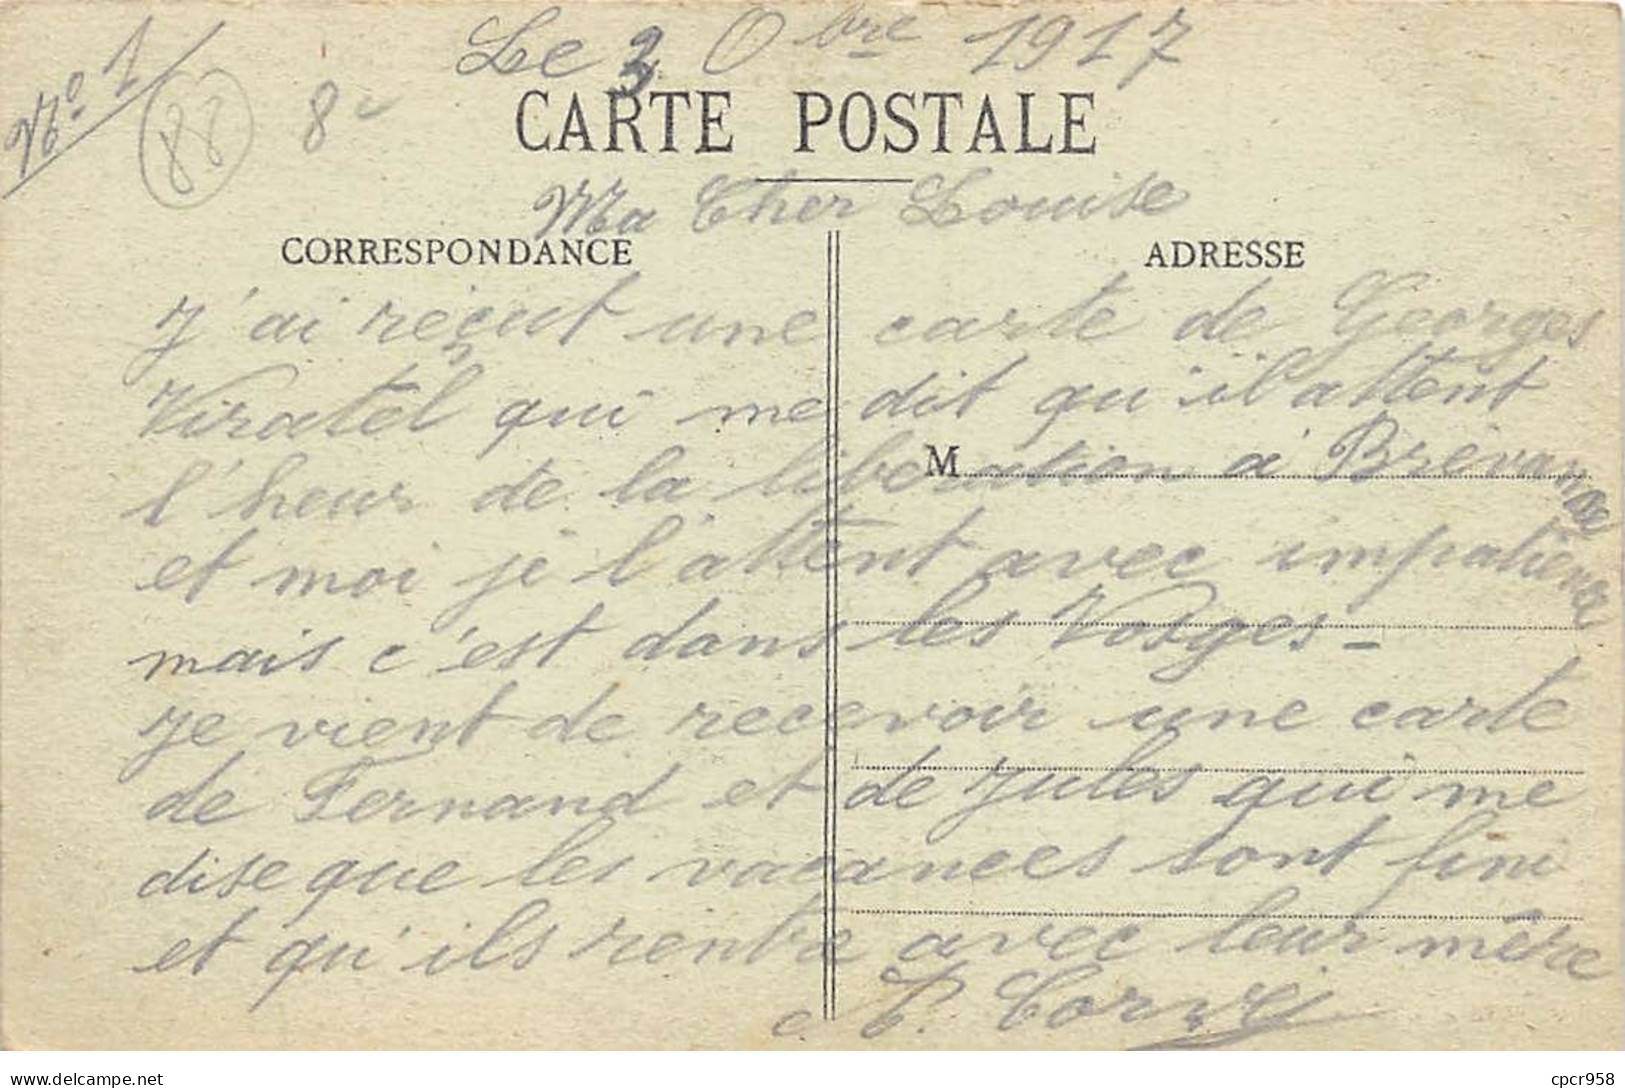 Nº 1
88
8
Le 3 Obre 1917
CARTE POSTALE
Ma Cher Louise
CORRESPONDANCE
ADRESSE
J'ai réçut une carte de Georges
Viratel qui me dit qu'il attent
l'heur de la libération à Brévannes
M
et moi je l'attent avec impatience
mais c'est dans les Vosges -
Je vient de recevoir une carte
de Fernand et de Jules qui me
dise que les vacances sont fini
et qu'ils rentre avec leur mère
cpcr958